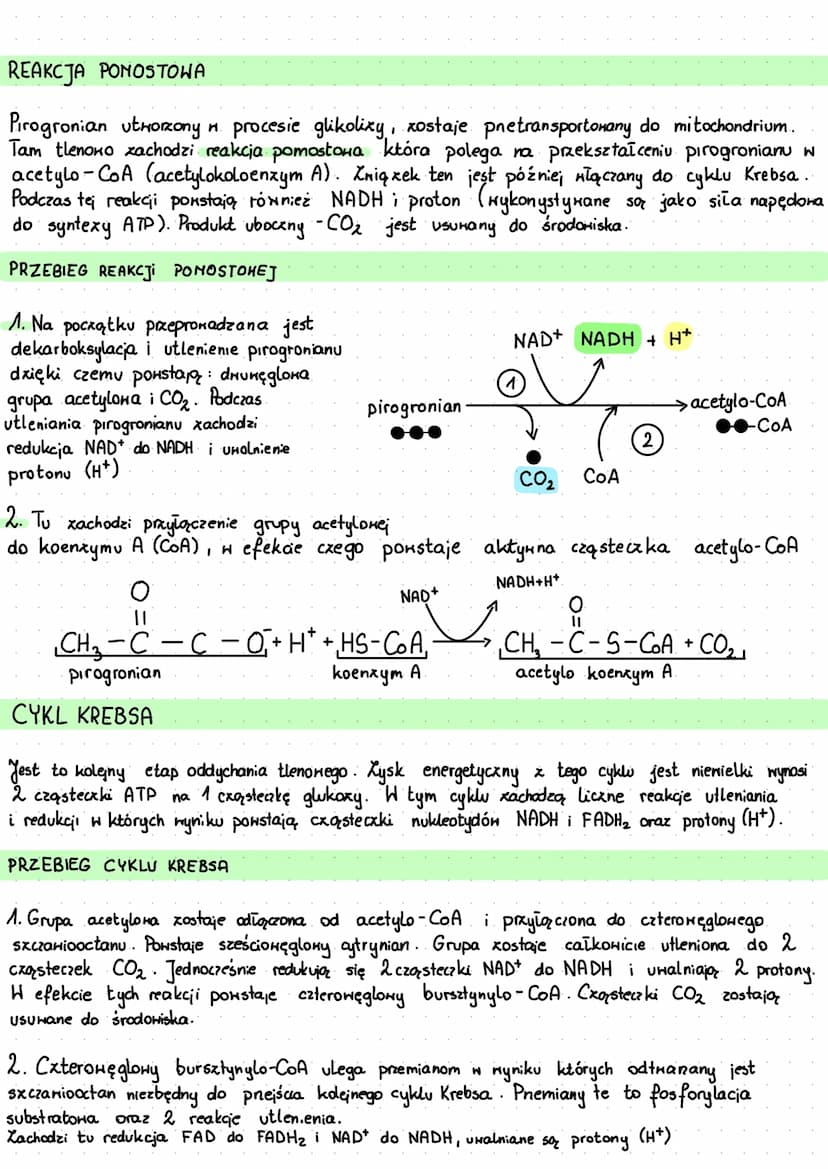 REAKCJA POMOSTOWA
Pirogronian utworzony w procesie glikolizy, zostaje przetransportowany do mitochondrium.
Tam tlenowo zachodzi reakcja pomostowa która polega na przekształceniu pirogronianu w
acetylo-CoA (acetylokoloenzym A). Związek ten jest później włączany do cyklu Krebsa.
Podczas tej reakcji powstają również NADH i proton (wykorzystywane są jako siła napędowa
do syntezy ATP). Produkt uboczny - CO₂ jest usuwany do środowiska.
PRZEBIEG REAKCJI POMOSTOWEJ
1. Na początku przeprowadzana jest
dekarboksylacja i utlenienie pirogronianu
dzięki czemu powstają: dwuwęglowa
grupa acetylowa i CO₂. Podczas
utleniania pirogronianu zachodzi
redukcja NAD⁺ do NADH i uwolnienie
protonu (H⁺)
NAD⁺ NADH + H⁺
1
pirogronian
acetylo-CoA
-CoA
2
CO₂ CoA
2. Tu zachodzi przyłączenie grupy acetylowej
do koenzymu A (CoA), w efekcie czego powstaje aktywna cząsteczka acetylo-CoA
O
NAD⁺
NADH+H⁺
O
CH₃ - C - C - O⁻ + H⁺ + HS-CoA
CH₃ - C - S - CoA + CO₂
pirogronian koenzym A acetylo koenzym A
CYKL KREBSA
Jest to kolejny etap oddychania tlenowego. Zysk energetyczny z tego cyklu jest niewielki wynosi
2 cząsteczki ATP na 1 cząsteczkę glukozy. W tym cyklu zachodzą liczne reakcje utleniania
i redukcji w których wyniku powstają cząsteczki nukleotydów NADH i FADH₂ oraz protony (H⁺).
PRZEBIEG CYKLU KREBSA
1. Grupa acetylowa zostaje odłączona od acetylo-CoA i przyłączona do czterowęglowego
szczawiooctanu. Powstaje sześciowęglowy cytrynian. Grupa zostaje całkowicie utleniona do 2
cząsteczek CO₂. Jednocześnie redukują się 2 cząsteczki NAD⁺ do NADH i uwalniają 2 protony.
W efekcie tych reakcji powstaje czterowęglowy bursztynylo-CoA. Cząsteczki CO₂ zostają
usuwane do środowiska.
2. Czterowęglowy bursztynylo-CoA ulega przemianom w wyniku których odtwarzany jest
szczawiooctan niezbędny do przejścia kolejnego cyklu Krebsa. Przemiany te to fosforylacja
substratowa oraz 2 reakcje utlen.enia.
Zachodzi tu redukcja FAD do FADH₂ i NAD⁺ do NADH, uwalniane są protony (H⁺)